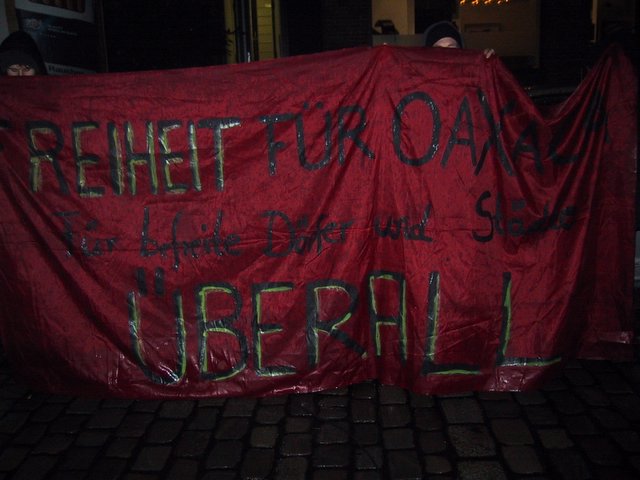 FREIHEIT FÜR OAXACA
Für befreite Dörfer und Städte
ÜBERALL